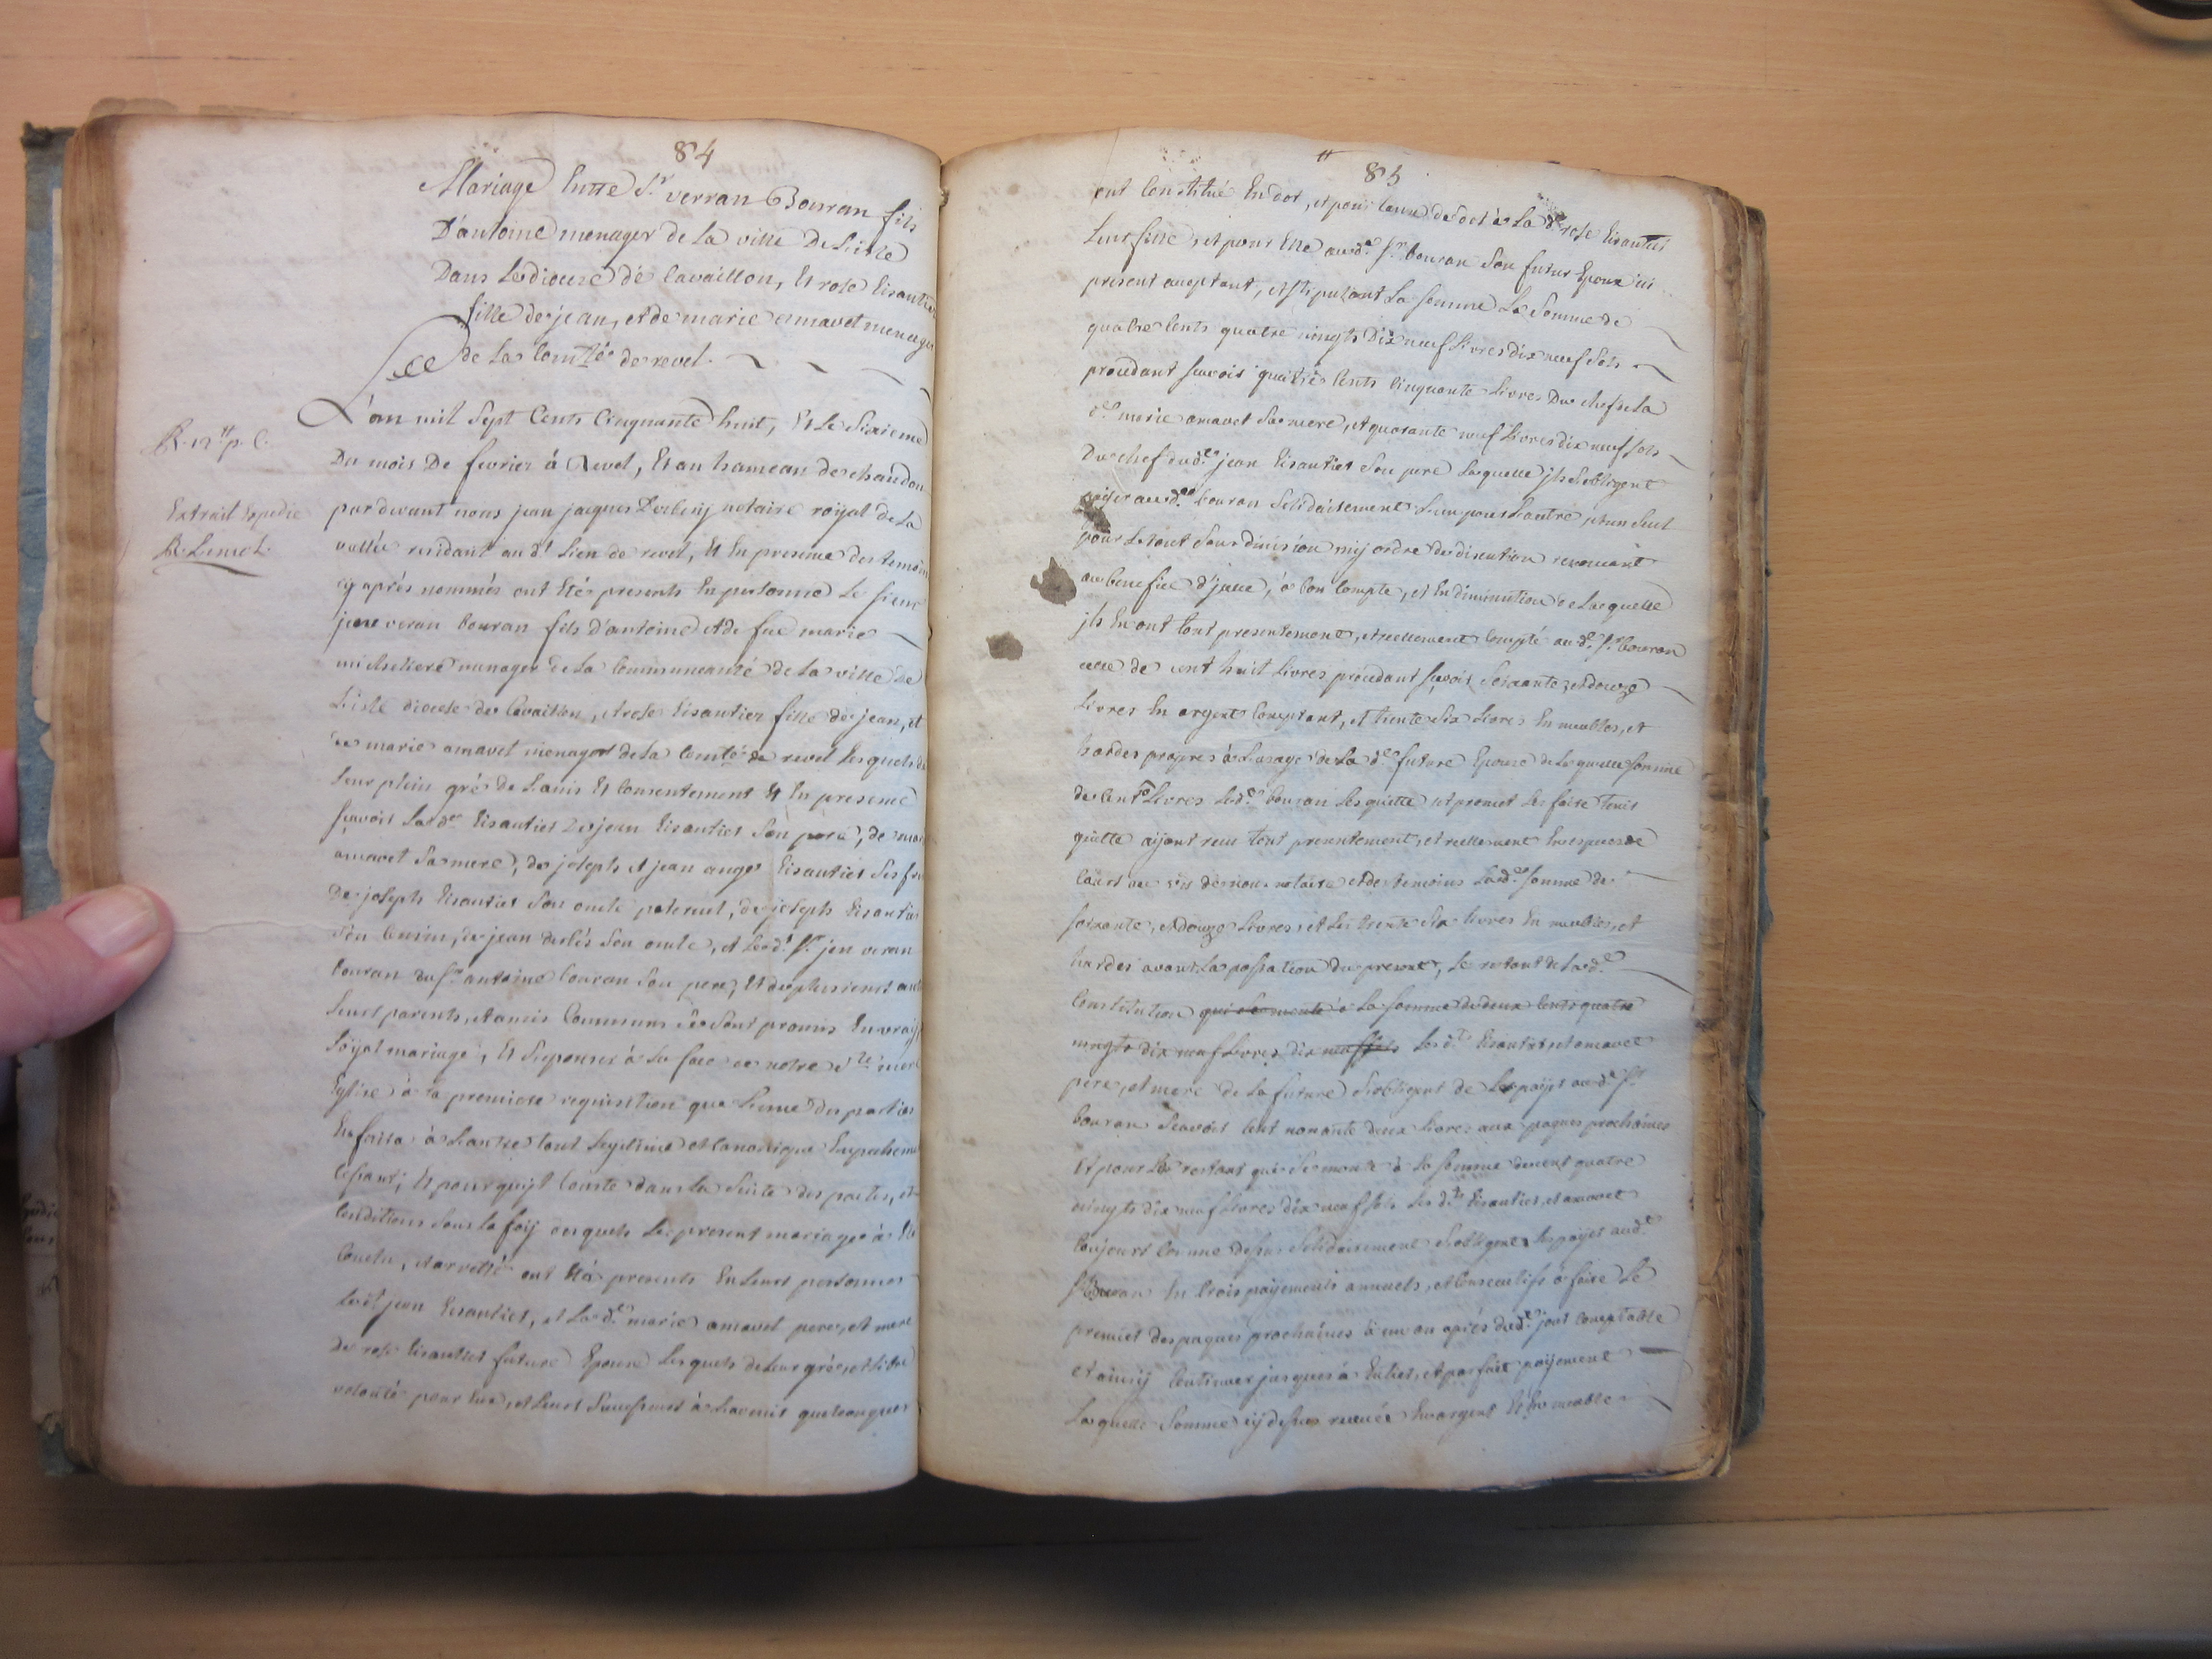 84
Mariage Entre Sr. verran Bouran fils
D'antoine menager de La ville De Lisle
Dans Le dioceze de Cavaillon, Et rose Eisautier
fille de jean, et de marie amavet menager
de La Comté de revel.
L'an mil Sept Cents Cinquante huit, Et Le Sixieme
Du mois De fevrier à Revel, Et au hameau de chaudon
R. 12 p. C.
pardevant nous jean jaques notaire royal de La
Extrait Expedié
vallée residant au dt. Lieu de revel, Et En presence des temoins
cy aprés nommés ont Eté presents En personne Le sieur
veran bouran fils d'antoine et de fue marie
menager de La Communeauté de La ville de
Lisle diocese de Cavaillon, et rose Eisautier fille de jean, et
de marie amavet menager de La Comté de revel Lesquels de
Leur plein gré de L'avis Et Consentement Et En presence
sçavoir Lade. Eisautier de jean Eisautier Son pere, de marie
amavet Sa mere, de joseph et jean ange Eisautier Ses fre
De joseph Eisautier Son oncle paternel, de joseph Eisautier
Son Cousin, de jean Son oncle, et Led. Sr. jen veran
bouran du Sr. antoine bouran Son pere, Et de plusieurs autr
Leurs parents, et amis Communs Se Sont promis En vray,
Loyal mariage, Et Sepouser à La face de notre Ste. mere
Eglise à La premiere requisition que L'une des parties
En faira à L'autre tout Legitime et Canonique Empechemen
Cessant; Et pour qu'il Conste dans La Suite des pactes, et
Conditions Sous La foy desquels Le present mariage à Eté
Conclu, et arretté ont Eté presents En Leurs personnes
Ledt jean Eisautier, et Lade. marie amavet pere, et mere
De rose Eisautier future Epouse Lesquels de Leur gré, et Libre
volonté pour Eux, et Leurs Successeurs à L'avenir quelconques
85
ont Constitué En dot, et pour Cause de dot à La de. rose Eisautier
Leur fille, et pour Elle aud. Sr. bouran Son futur Epoux ici
present acceptant, et stipulant La somme La Somme de
quatre Cents quatre vingts Dix neuf Livres dix neuf Sols
procedant scavoir quatre Cents Cinquante Livres Du chef de La
de. marie amavet Sa mere, et quarante neuf Livres dix neuf sols
Du chef dud. jean Eisautier Son pere Laquelle ils S'obligent
payer aud. bouran Solidairement L'un pour L'autre, et un Seul
pour Le tout Sans division ny ordre de discution renonçant
au benefice d'jcelle, à bon Compte, et En diminution de Laquelle
jls En ont tout presentement, et reellement Compté aud. Sr. bouran
celle de cent huit Livres procedant sçavoir Soixante, et douze
Livres En argent Comptant, et trente Six Livres En meubles, et
hardes propres à L'usage de La de. future Epouse de Laquelle somme
de Cent Livres Led. bouran Les quitte et promet Les faire tenir
quitte ayant reçu tout presentement, et reellement En especes de
Cours au vû de nous notaire et des temoins Lade. somme de
soixante, et douze Livres, et Les trente Six Livres En meubles, et
hardes avant La passation du present, Le restant de Lad.
Constitution qui Se monte à La somme de deux Cents quatre
vingts dix neuf Livres dix neuf sols Lesd. Eisautier, et amavet
pere, et mere de La future S'obligent de Le payer aud. Sr.
bouran Scavoir Cent nonante deux Livres aux paques prochaines
Et pour Le restant qui Se monte à La somme de cent quatre
vingts dix neuf Livres dix neuf sols Les dts. Eisautier, et amavet
toujours Comme dessus Solidairement S'obligent Le payer aud.
Sr. Bouran En trois payements annuels, et Consecutifs à faire Le
premier des paques prochaines à un an aprés dud. jour Comptable
et ainsy Continuer jusques à Entier, et parfait payement
Laquelle Somme cy dessus receüe En argent Et En meubles